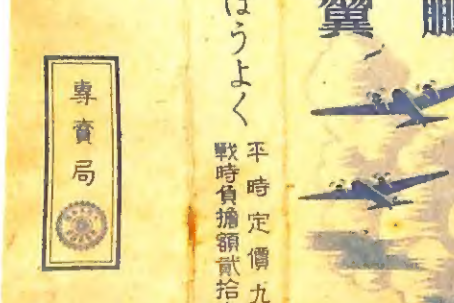 鵬翼
ほうよく
平時定價九
戰時負擔額貳拾
專賣局